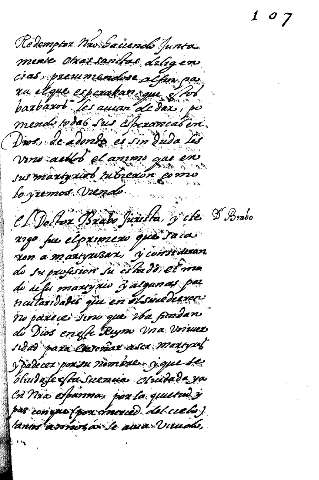 107
Redemptor nro haciendo Junta
mente otras sanctas delig en
cias, presumiendose al fin pa
ra el que esperaban que estos
barbaros les avian de dar, po
niendo todas sus esperanças en
Dios, de adonde es sin duda les
vino a ellos el animo que en
sus martyrios tubieron como
lo yremos viendo
El Doctor Brabo Jurista, y cle
D. Brabo
rigo fue el primero que saca
ron a martyrizar, y consideran
do su profesion su estado, el mo
do de su martyrio y algunas par
ticularidades que en el sucedieron
no parece sino que iba fundan
do Dios en este Reyno una univer
sidad para enseñar a ser martyres
y padecer por su nombre, y que de
esta sciencia el cuidado ya
la nra españa, por la quietud y
paz conque (por merced del cielo)
tantos a se avia vivido,